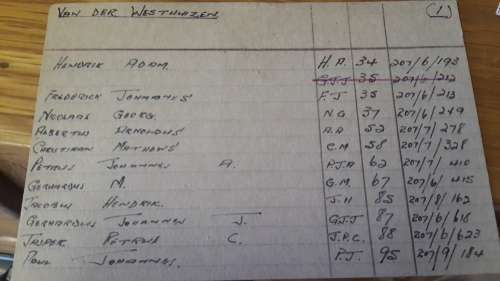 VAN DER WESTHUIZEN (1)
HENDRIK ADAM. H.A. 34 207/6/193
G.J.J 35 207/6/212
FREDERICK JOHANNES F.J 35 207/6/213
NICOLAAS GEORG. N.G 37 207/6/249
ALBERTUS ARNOLDUS A.A 52 207/7/278
CHRISTIAAN MATHEWS C.M 58 207/7/328
PETRUS JOHANNES A. P.J.A 62 207/7/410
GERHARDUS M. G.M. 67 207/6/415
JACOBUS HENDRIK. J.H 85 207/8/162
GERHARDUS JOHANNES J. G.J.J 87 207/6/618
JASPER PETRUS C. J.P.C. 88 207/6/623
PAUL JOHANNES. P.J. 95 207/9/184